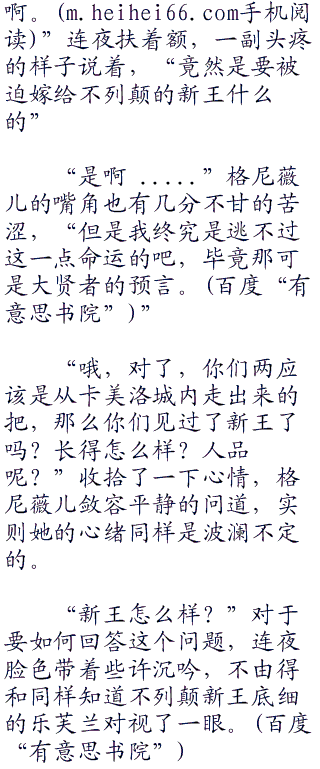 啊。(m.heihei66.com手机阅
读)”连夜扶着额，一副头疼
的样子说着，“竟然是要被
迫嫁给不列颠的新王什么
的”
“是啊 .....”格尼薇
儿的嘴角也有几分不甘的苦
涩，“但是我终究是逃不过
这一点命运的吧，毕竟那可
是大贤者的预言。(百度“有
意思书院”)”
“哦，对了，你们两应
该是从卡美洛城内走出来的
把，那么你们见过了新王了
吗？长得怎么样？人品
呢？”收拾了一下心情，格
尼薇儿敛容平静的问道，实
则她的心绪同样是波澜不定
的。
“新王怎么样？”对于
要如何回答这个问题，连夜
脸色带着些许沉吟，不由得
和同样知道不列颠新王底细
的乐芙兰对视了一眼。(百度
“有意思书院”)